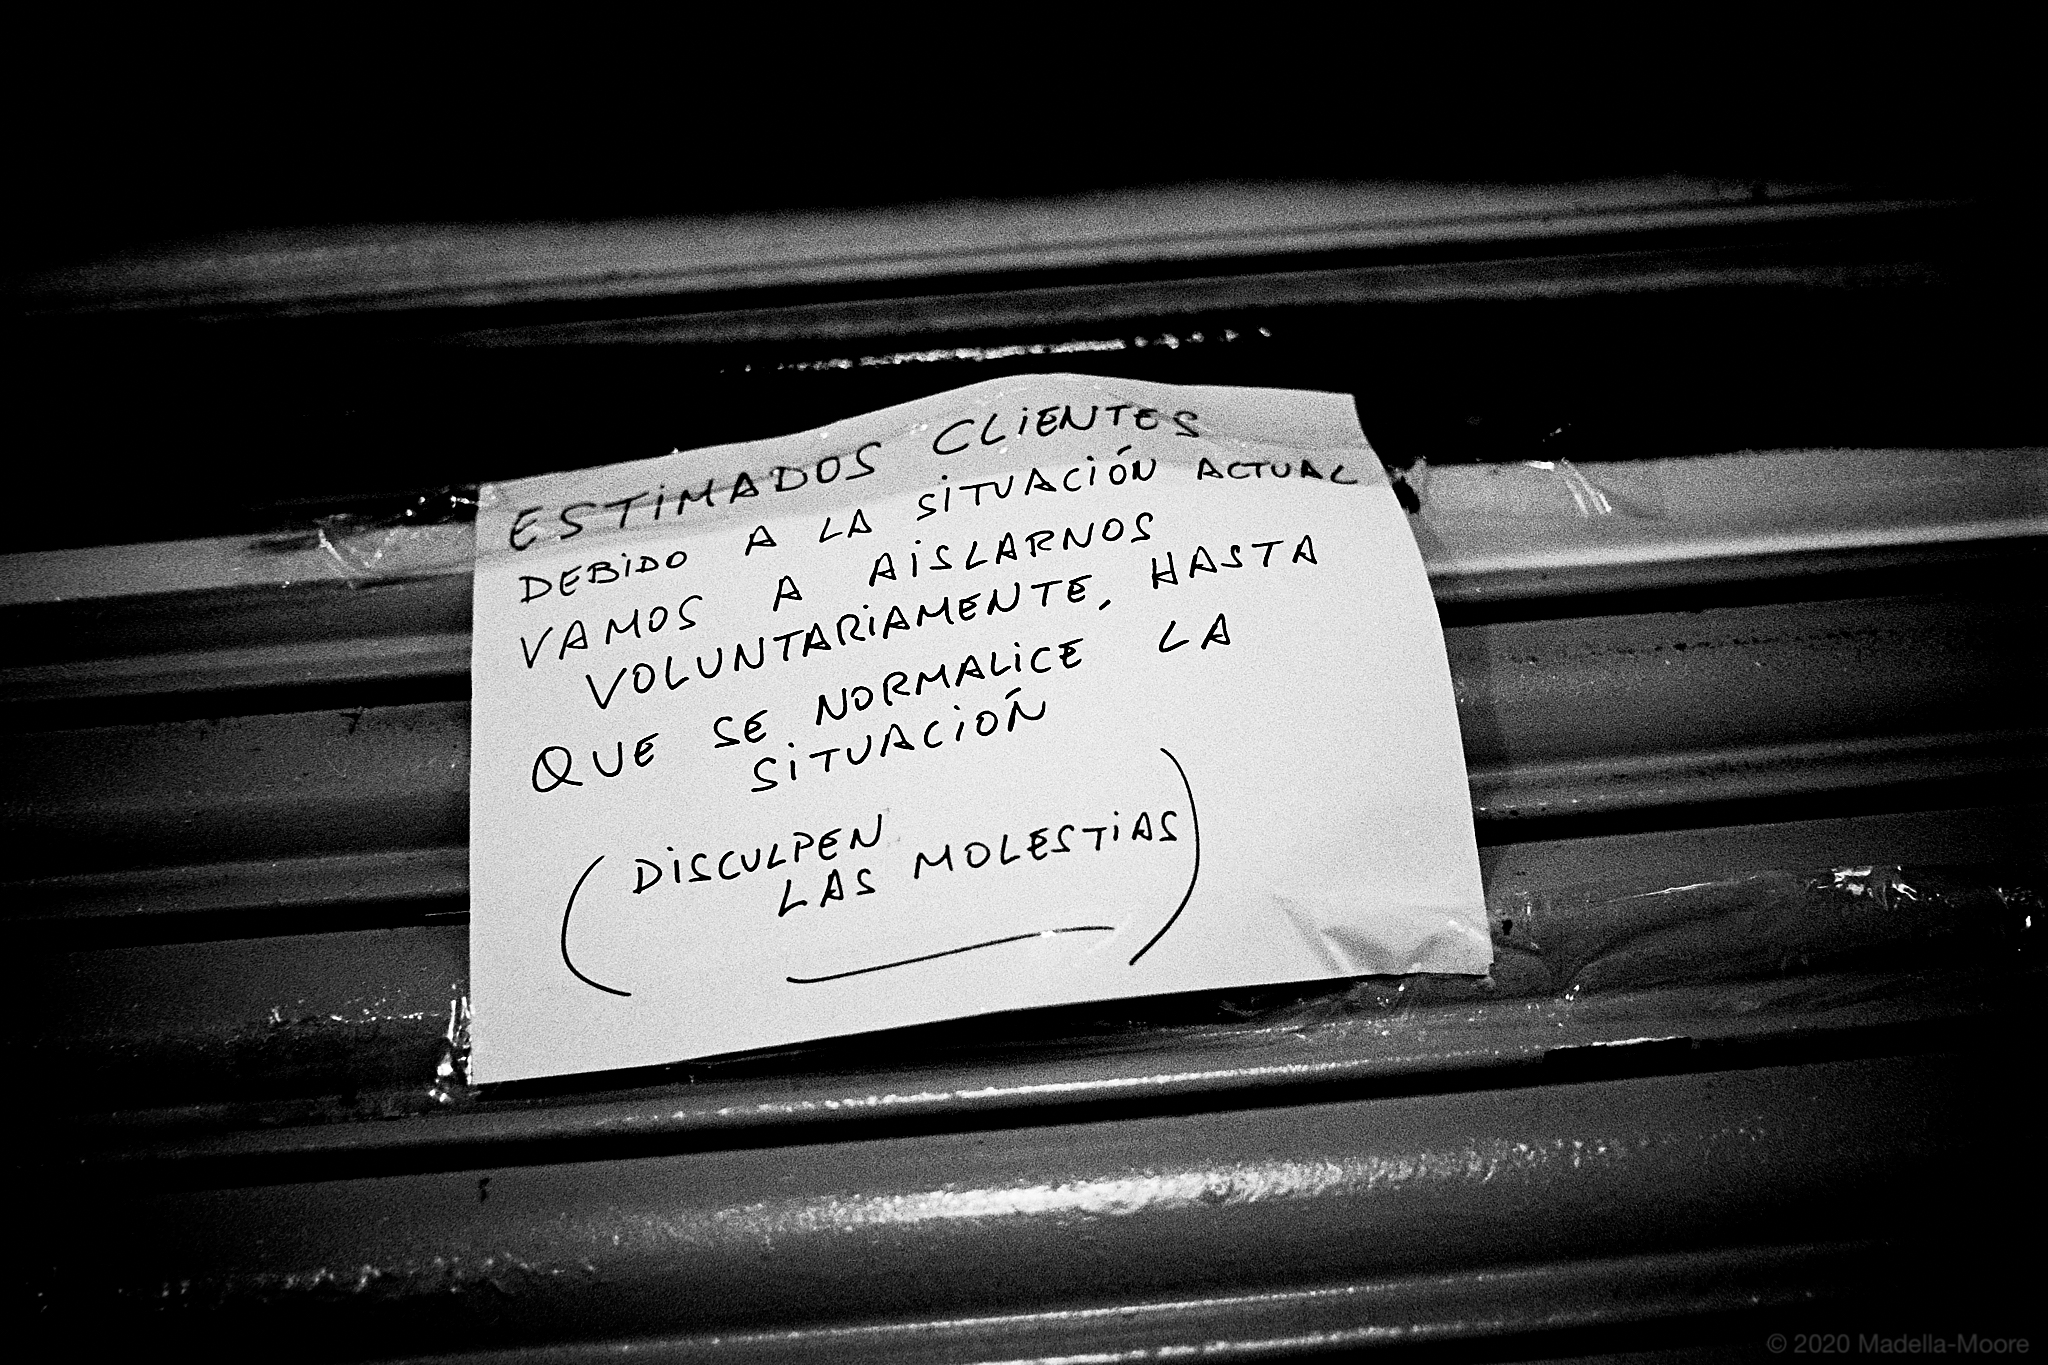 ESTiMADOS CLiENTES
DEBiDO A LA SiTUACiÓN ACTUAL
VAMOS A AiSLARNOS
VOLUNTARiAMENTE, HASTA
QUE SE NORMALiCE LA
SiTUACiÓN
(DiSCULPEN
LAS MOLESTiAS)
© 2020 Madella-Moore